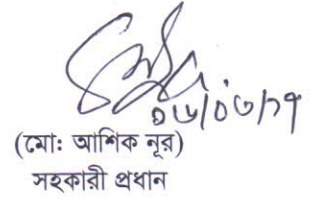 ০৬/০৩/১৭
(মোঃ আশিক নূর)
সহকারী প্রধান